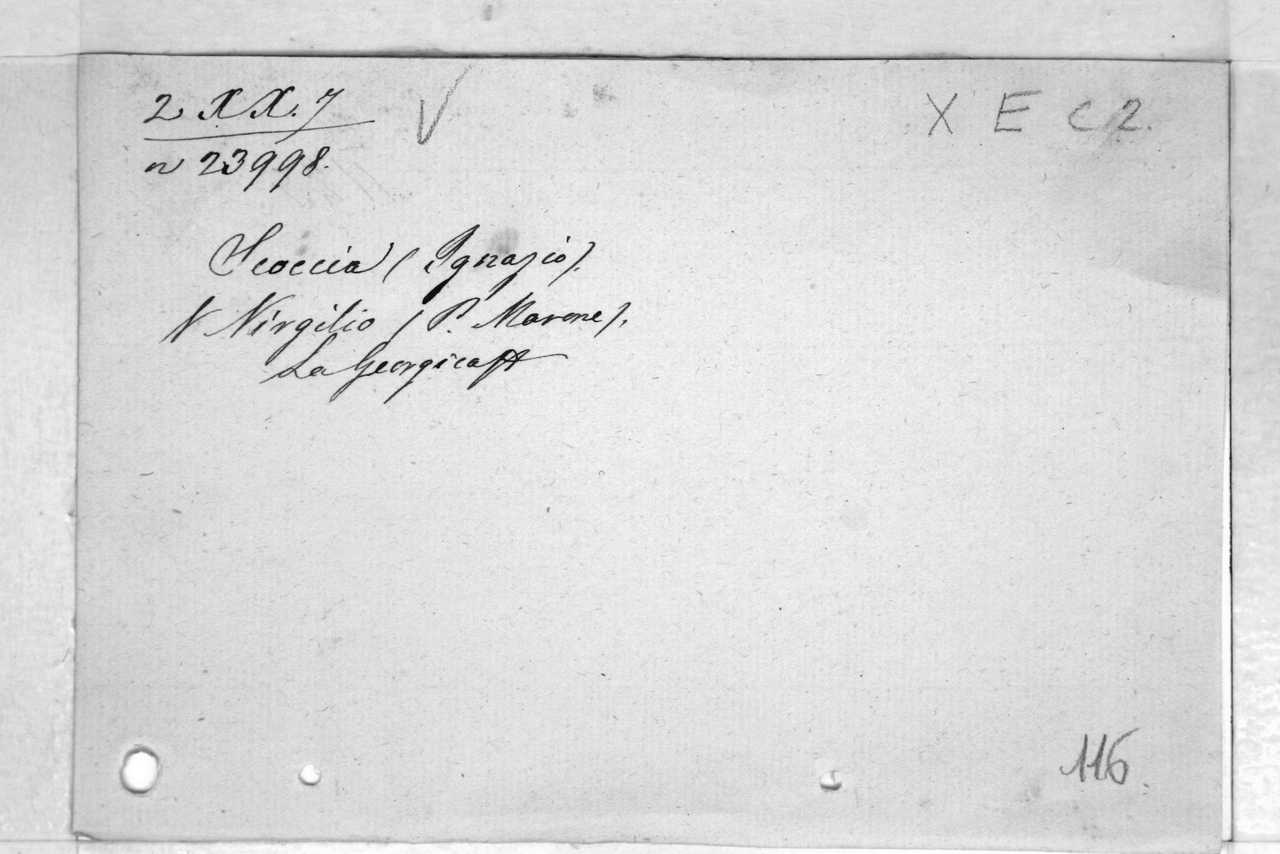 2 XX. 7
n 23998.
X E C 2.
Scoccia (Ignazio).
V Virgilio (P. Marone).
La Georgica
116